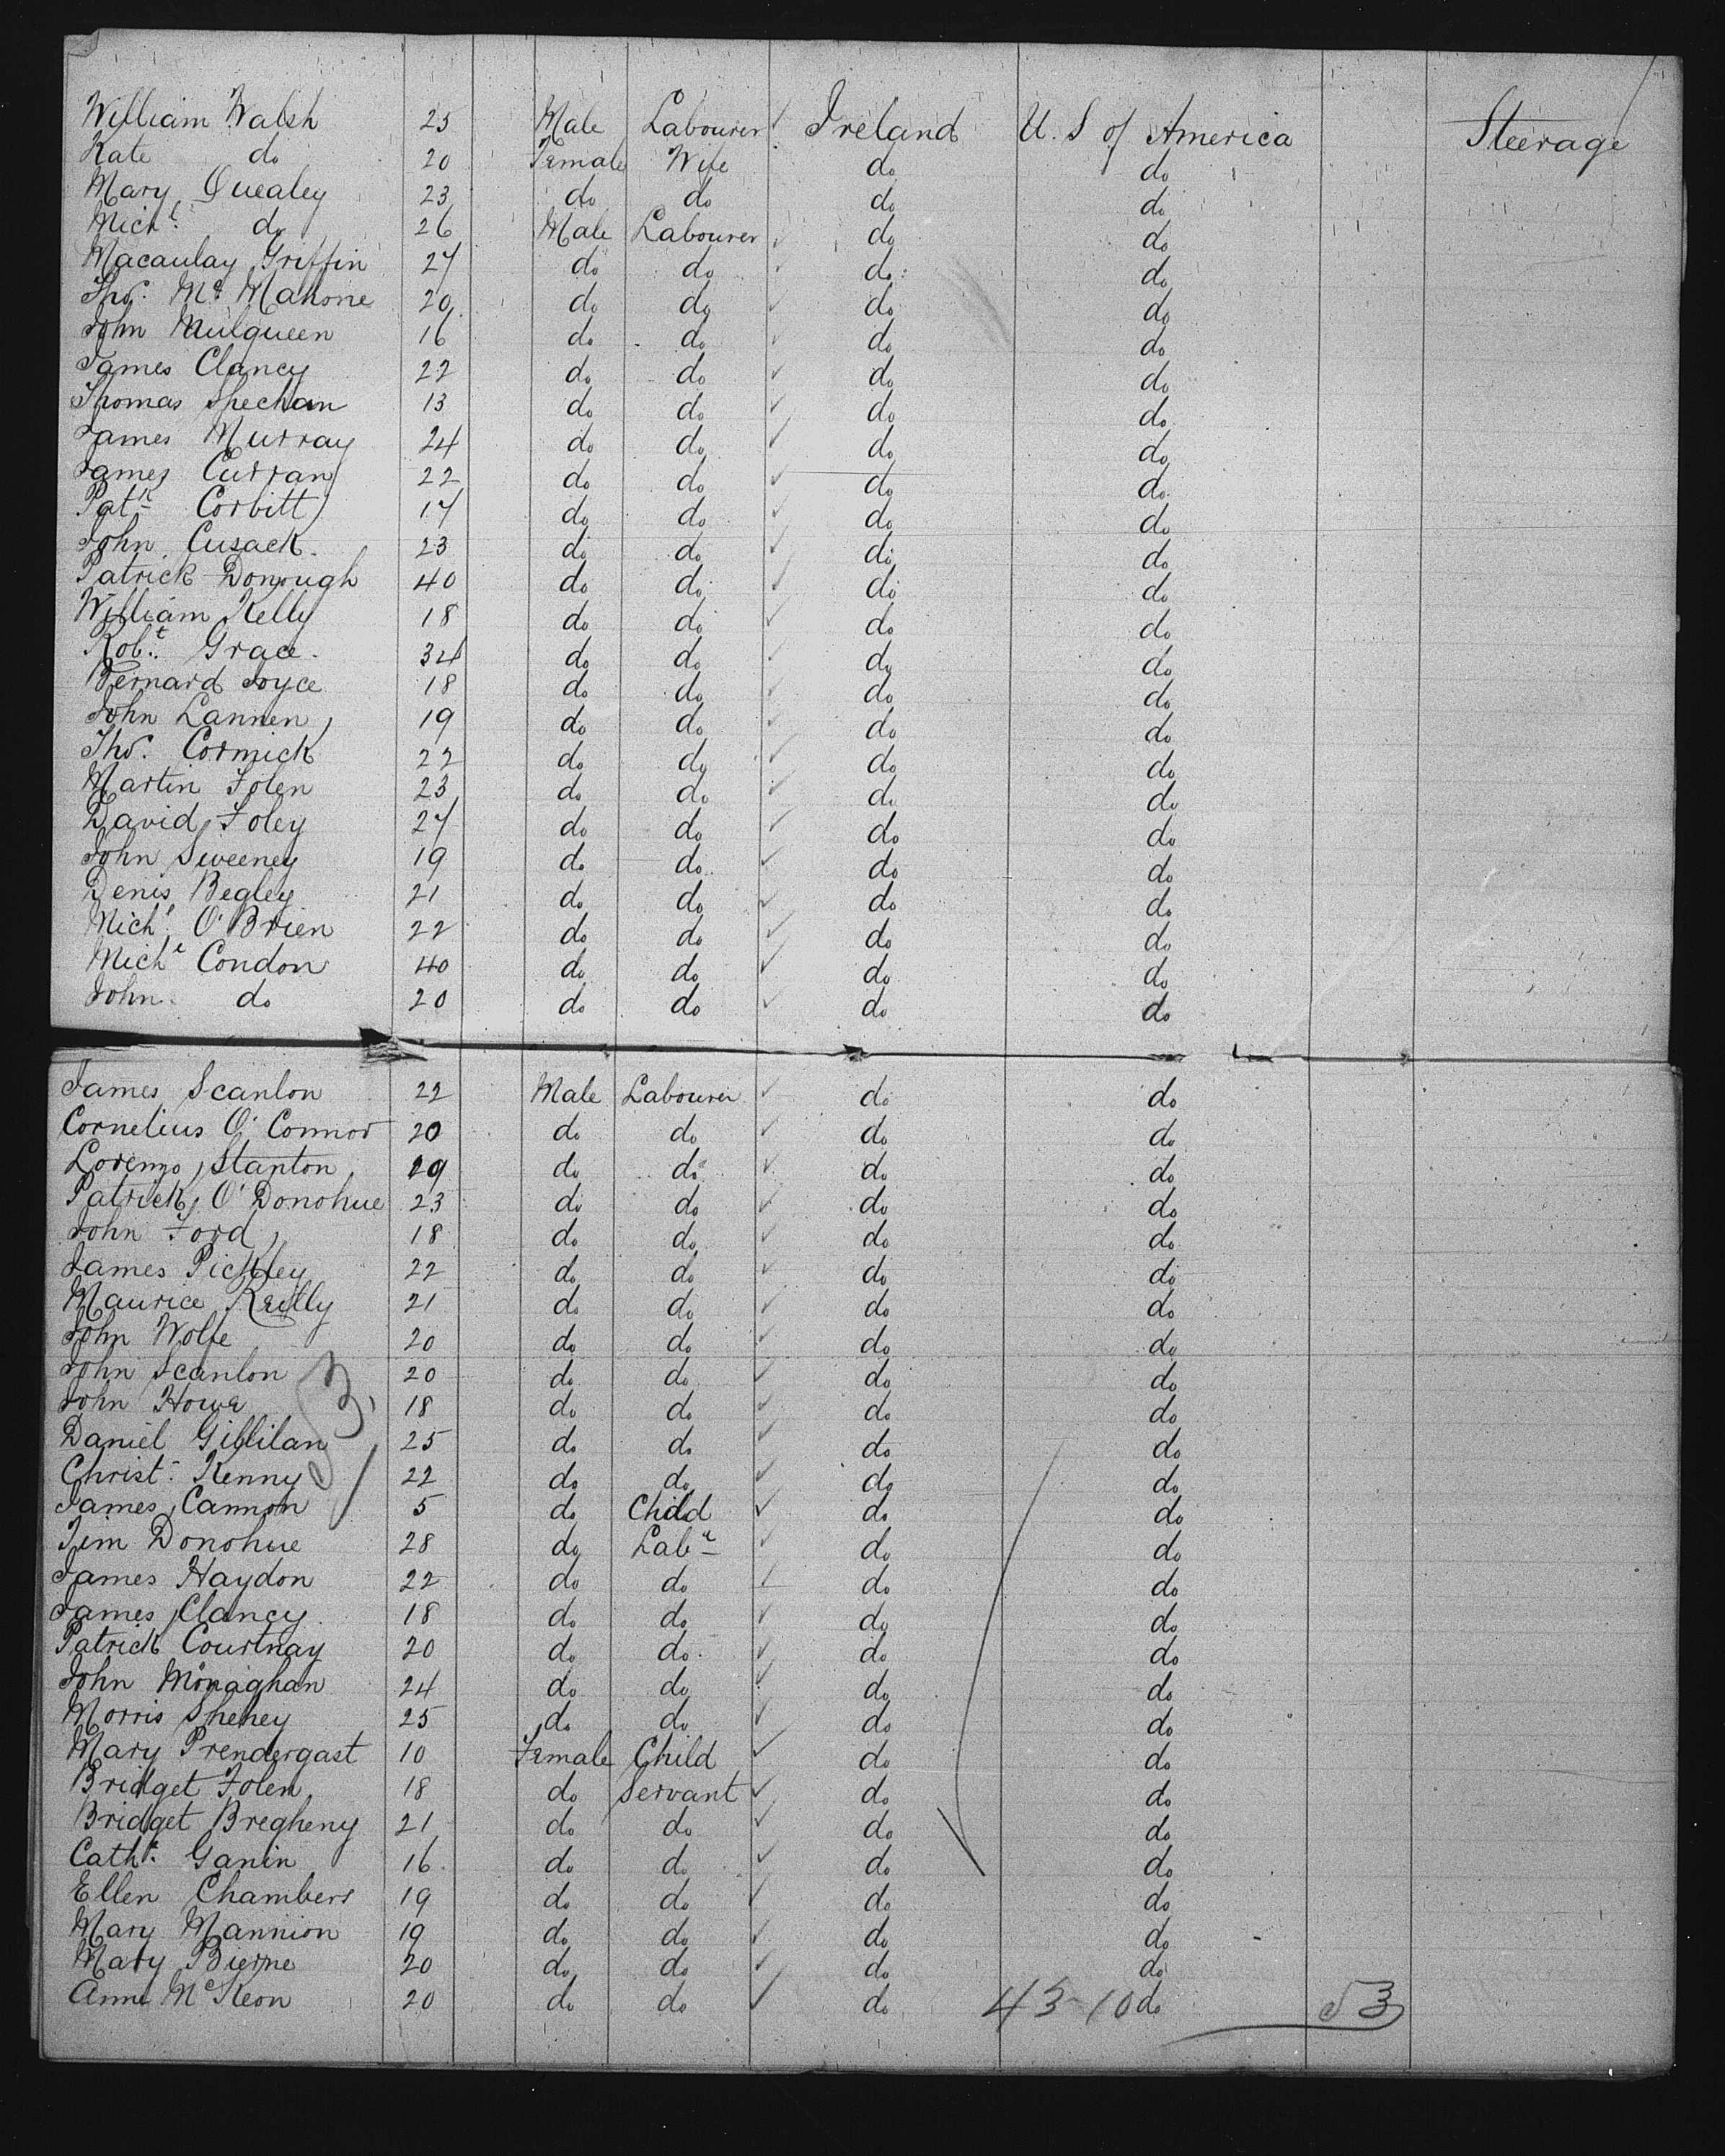 William Walsh 25 Male Labourer Ireland U. S of America Steerage
Kate do 20 Female Wife do do
Mary Quealey 23 do do do do
Michl. do 26 Male Labourer do do
Macaulay Griffin 27 do do do do
Thos. Mc Mahone 20 do do do do
John Mulqueen 16 do do do do
James Clancy 22 do do do do
Thomas 13 do do do do
James Murray 24 do do do do
James Curran 22 do do do do
Patk Corbitt 17 do do do do
John Cusack. 23 do do do do
Patrick Donough 40 do do do do
William Kelly 18 do do do do
Robt. Grace. 34 do do do do
Bernard Joyce 18 do do do do
John Lannen 19 do do do do
Thos. Cormick 22 do do do do
Martin Folen 23 do do do do
David Foley 27 do do do do
John Sweeney 19 do do do do
Denis Begley 21 do do do do
Michl O'Brien 22 do do do do
Michl Condon 40 do do do do
John do 20 do do do do
James Scanlon 22 Male Labourer do do
Cornelius O'Connor 20 do do do do
Lorenzo Stanton 29 do do do do
Patrick O'Donohue 23 do do do do
John Ford 18 do do do do
James 22 do do do do
Maurice Reilly 21 do do do do
John Wolfe 20 do do do do
John Scanlon 20 do do do do
John Howe 18 do do do do
Daniel Gillilan 25 do do do do
Christ. Kenny 22 do do do do
James Cannon 5 do Child do do
Tim Donohue 28 do Labr do do
James Haydon 22 do do do do
James Clancy 18 do do do do
Patrick Courtnay 20 do do do do
John Monaghan 24 do do do do
Morris Shehey 25 do do do do
Mary Prendergast 10 Female Child do do
Bridget Folen 18 do Servant do do
Bridget Bregheny 21 do do do do
Cathe. Ganin 16 do do do do
Ellen Chambers 19 do do do do
Mary Mannion 19 do do do do
Mary Bierne 20 do do do do
Anne McKeon 20 do do do 43-10 do 53
53